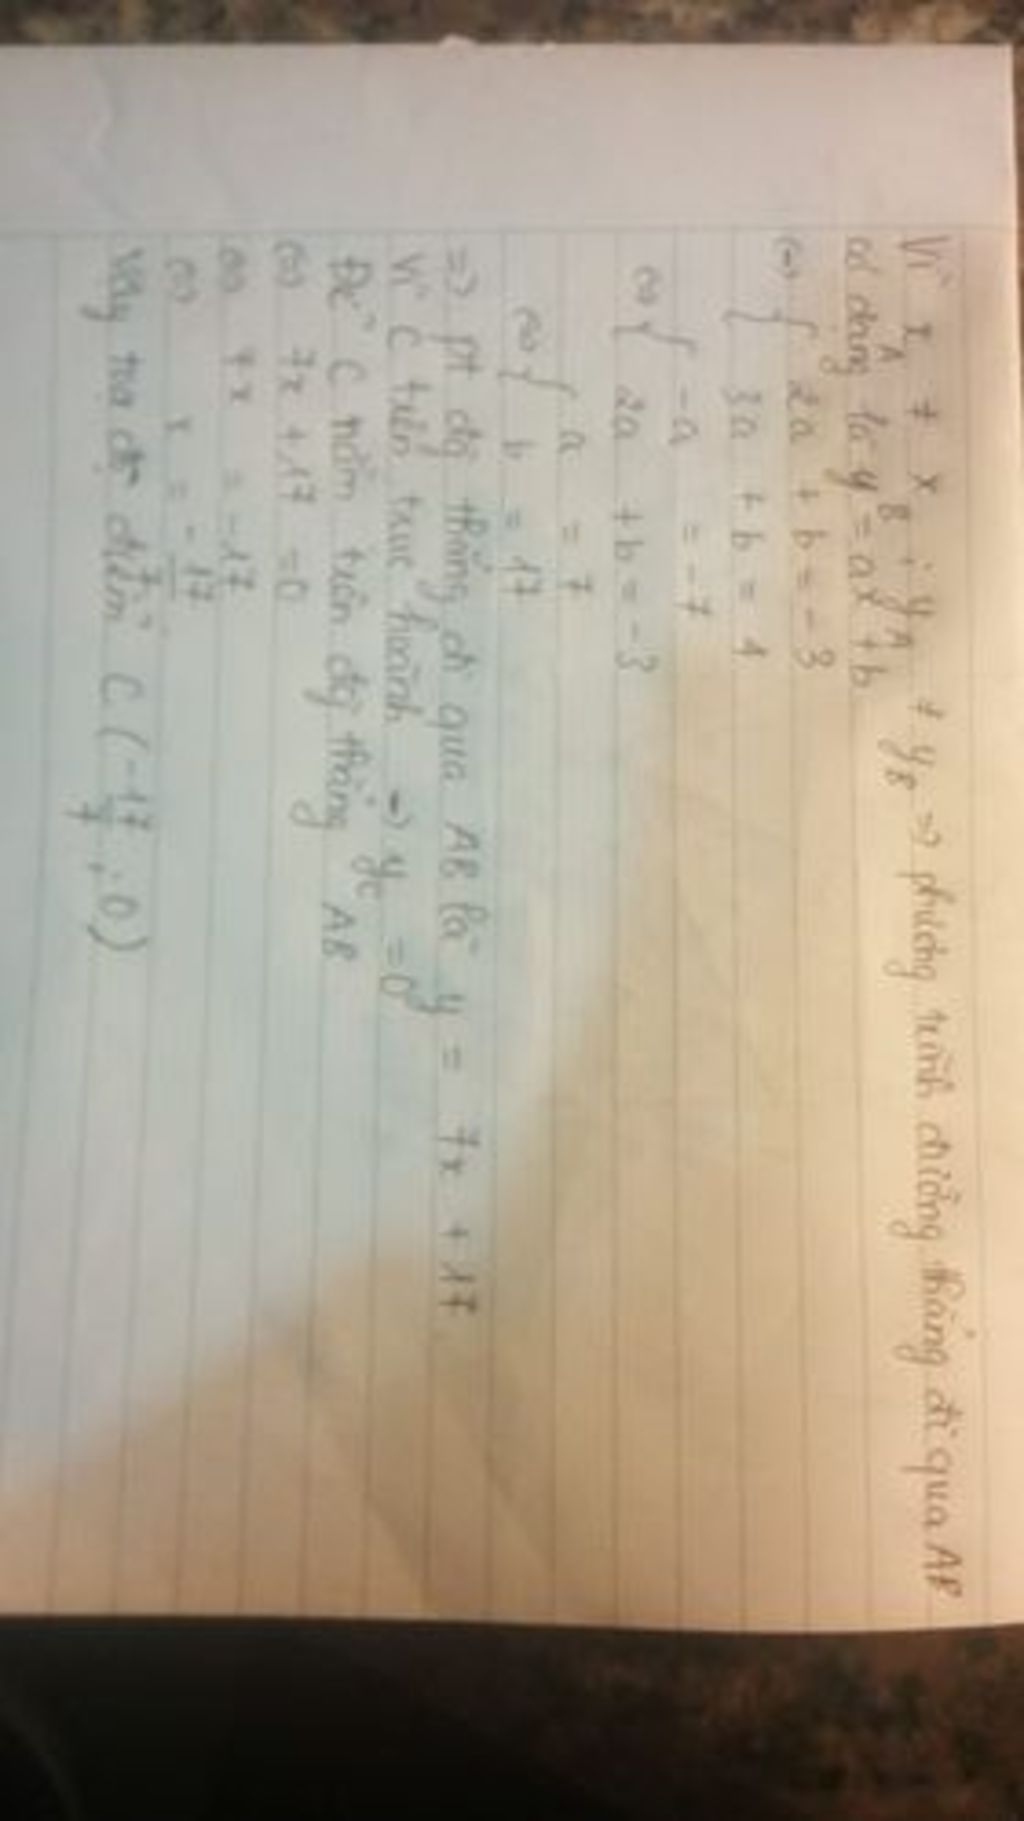 Vì x_A ≠ x_B ; y_A ≠ y_B => phương trình đường thẳng đi qua AB
có dạng là y = ax + b
(=) { 2a + b = -3
3a + b = 4
(=) { -a = -7
2a + b = -3
(=) { a = 7
b = 17
=> pt đg thẳng đi qua AB là y = 7x + 17
Vì C trên trục hoành => y_C = 0
Để C nằm trên đg thẳng AB
(=) 7x + 17 = 0
(=) 7x = -17
(=) x = -17/7
Vậy toạ độ điểm C (-17/7 ; 0)